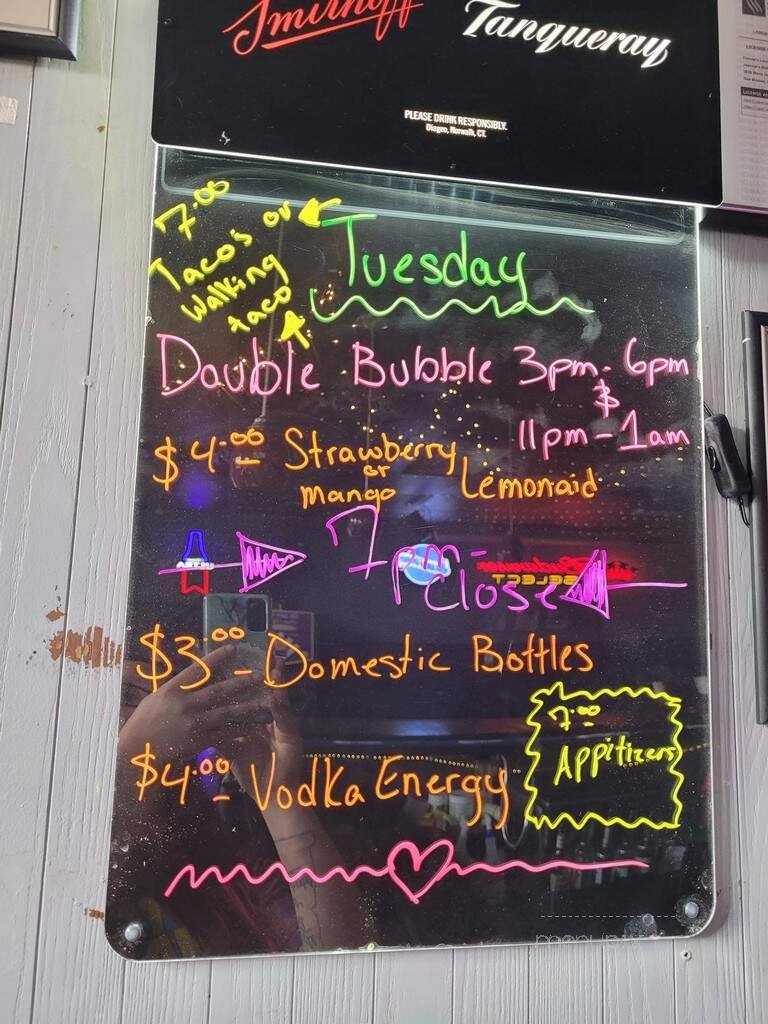 Smirnoff Tanqueray
PLEASE DRINK RESPONSIBLY.
Diageo, Norwalk, CT.
7.00
Taco's or
Walking
taco
Tuesday
Double Bubble 3pm-6pm
$
11pm-1am
$4.00 Strawberry
or
mango
Lemonaid
7pm-
Close
Budweiser
SELECT
$3.00 - Domestic Bottles
7.00
Appitizers
$4.00 Vodka Energy